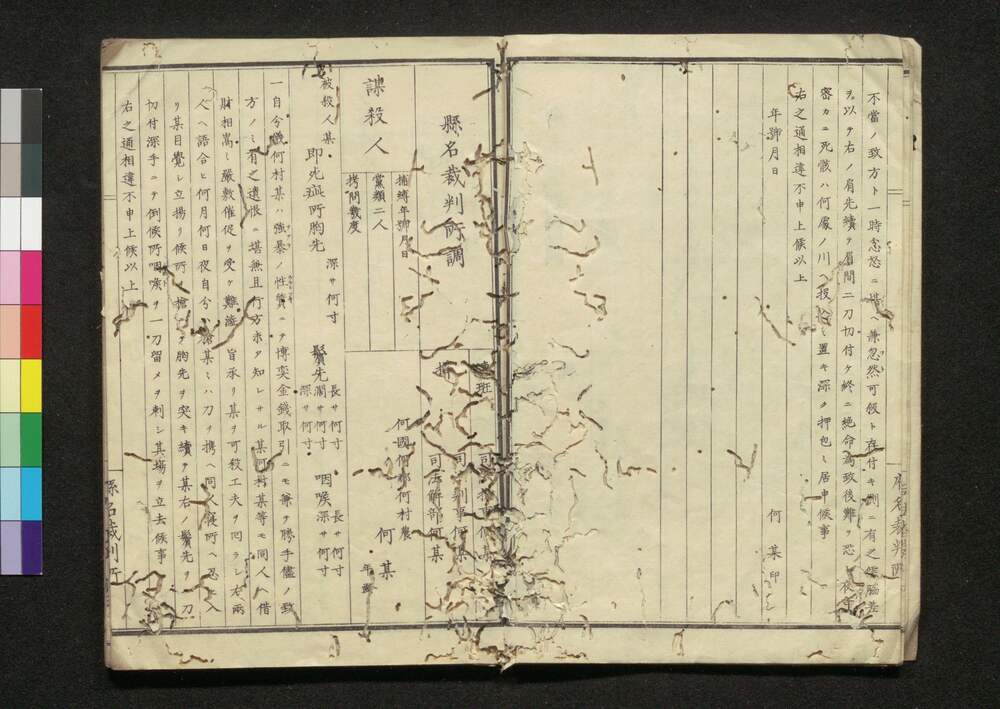 不當ノ致方ト一時忿怒ニ堪ヘ兼忽然可殺ト存付キ側ニ有之
ヲ以テ右ノ肩先續テ眉間二刀切付ケ終ニ絶命為致後難ヲ恐レ夜
密カニ死骸ハ何處ノ川ヘ投捨シ置キ深ク押包ミ居申候事
右之通相違不申上候以上
年號月日
何某印
縣名裁判所調
司法解部何某
捕縛年號月日
黨類二人
拷問幾度
何國何郡何村農
何某
年齢
謀殺人
被殺人某
即死疵所胸先 深サ何寸
鬢先 長サ何寸 濶サ何寸 深サ何寸
咽喉 長サ何寸 深サ何寸
一自分儀何村某ハ強暴ノ性質ニテ博奕金錢取引ニモ兼テ勝手儘ノ致
方ノミ有之遺恨ニ堪兼且行方未タ知レサル某何村某等モ同人ヘ借
財相嵩ミ嚴敷催促ヲ受ケ難澁ノ旨承リ某ヲ可殺工夫ヲ回ラシ右兩
人ヘ語合ヒ何月何日夜自分
某ハ刀ヲ携ヘ同人寝所ヘ忍ヒ入
リ某目覺シ立揚リ候所槍ニテ胸先ヲ突キ續テ某右ノ鬢先ヲ一刀
切付深手ニテ倒候所咽喉ヲ一刀留メヲ刺シ其場ヲ立去候事
右之通相違不申上候以上
縣名裁判所